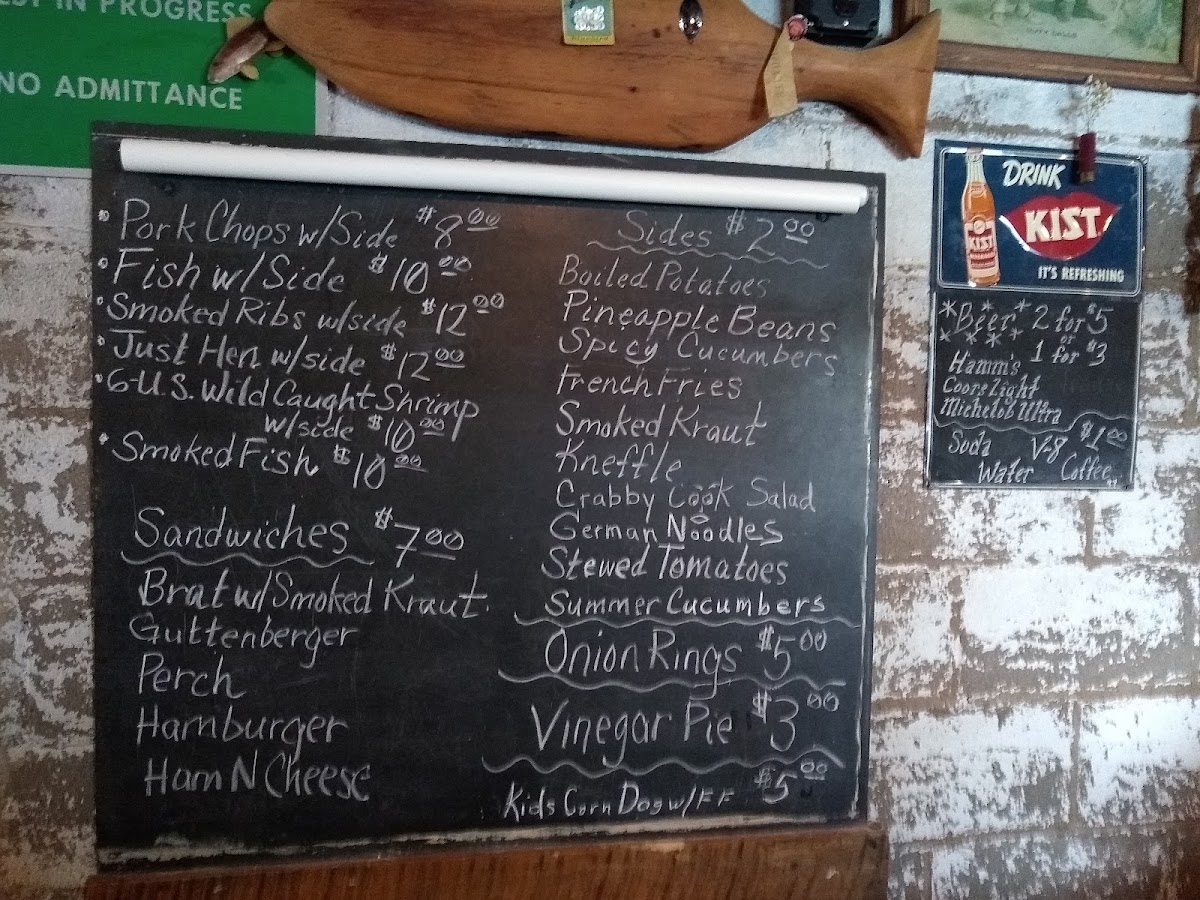 IN PROGRESS
NO ADMITTANCE
Pork Chops w/Side $8.00
Fish w/Side $10.00
Smoked Ribs w/side $12.00
Just Hen w/side $12.00
6-U.S. Wild Caught Shrimp
w/side $10.00
Smoked Fish $10.00
Sandwiches $7.00
Brat w/Smoked Kraut.
Guttenberger
Perch
Hamburger
Ham N Cheese
Sides $2.00
Boiled Potatoes
Pineapple Beans
Spicy Cucumbers
French Fries
Smoked Kraut
Kneffle
Crabby Cook Salad
German Noodles
Stewed Tomatoes
Summer Cucumbers
Onion Rings $5.00
Vinegar Pie $3.00
Kids Corn Dog w/FF $5.00
DRINK
KIST
KIST
IT'S REFRESHING
*Beer* 2 for $5
or
1 for $3
Hamm's
Coors Light
Michelob Ultra
Soda V-8 $1.00
Water Coffee